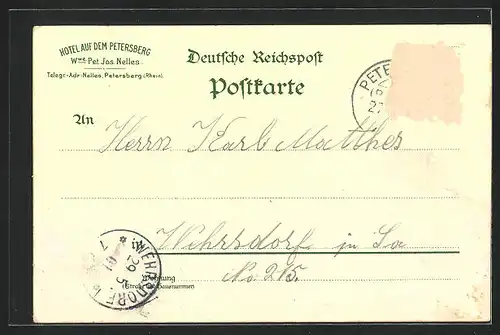 HOTEL AUF DEM PETERSBERG
Wwe Pet. Jos. Nelles.
Telegr.-Adr.: Nelles, Petersberg (Rhein).
Deutsche Reichspost
Postkarte
PETE
An
Herrn Karl Matthes
in
Wehrsdorf in Sa
No 215.
Wohnung
(Straße und Hausnummer)
WEHRSDORF
29 5